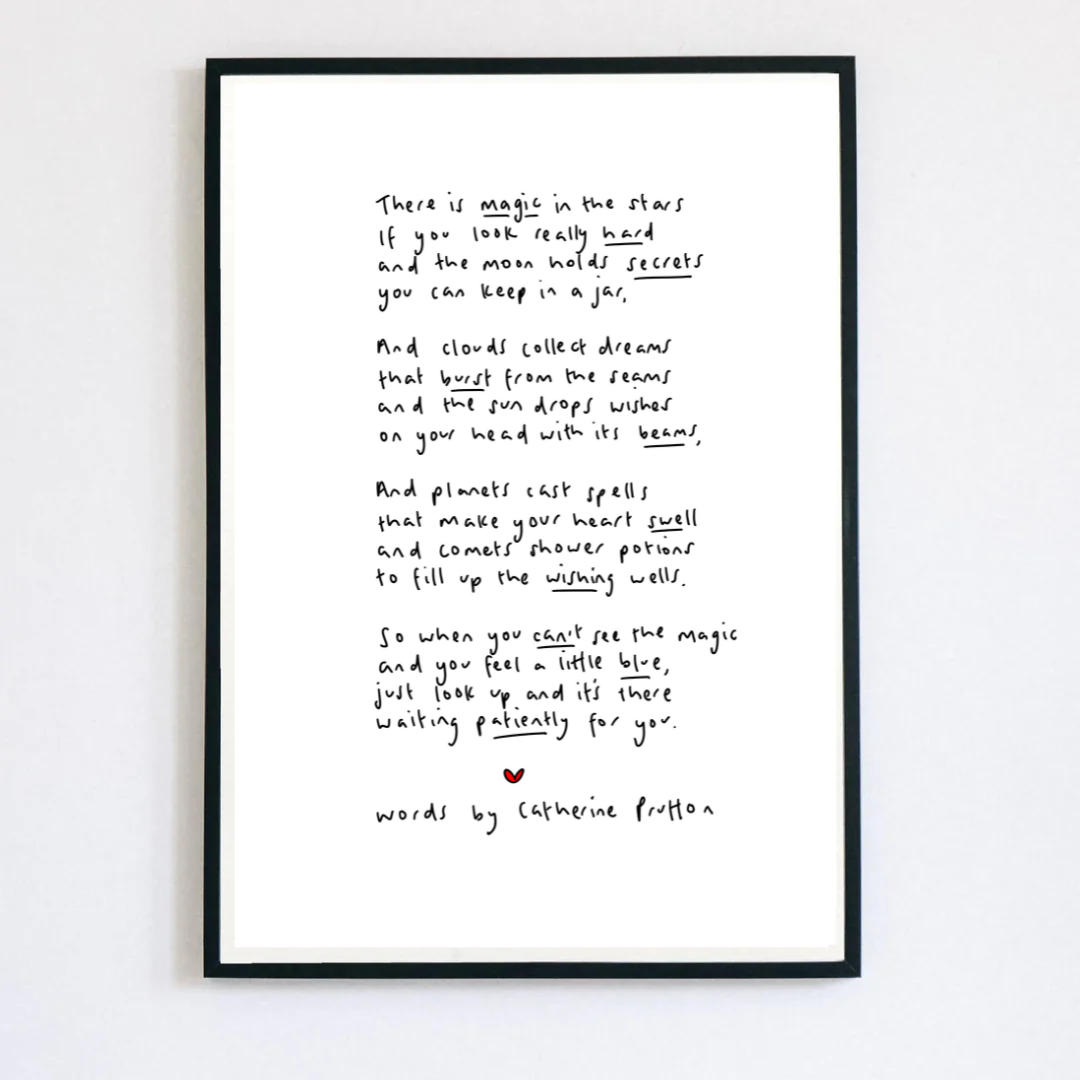 There is magic in the stars
If you look really hard
and the moon holds secrets
you can keep in a jar,
And clouds collect dreams
that burst from the seams
and the sun drops wishes
on your head with its beams,
And planets cast spells
that make your heart swell
and comets shower potions
to fill up the wishing wells.
So when you can't see the magic
and you feel a little blue,
just look up and it's there
waiting patiently for you.
words by Catherine Prutton